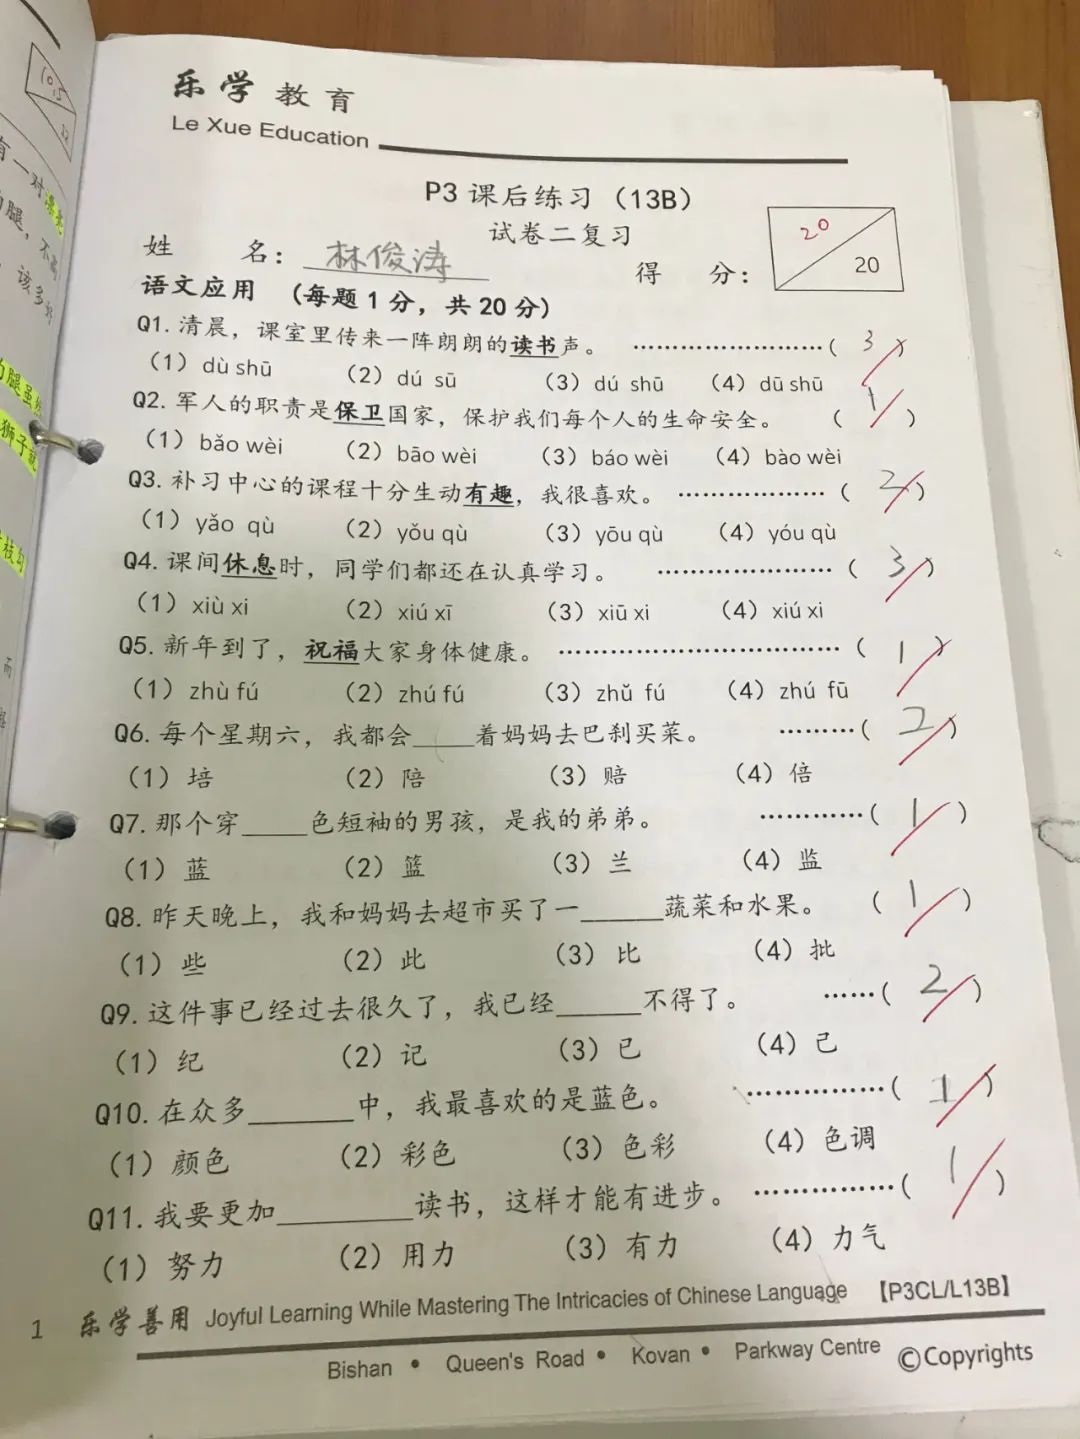 10.5
有一对漂亮
的腿，不
该多好
的腿虽然
狮子就
枝勾
而
乐学 教育
Le Xue Education
P3 课后练习（13B）
试卷二复习
20
20
姓 名：林俊涛 得 分：
语文应用 （每题 1 分，共 20 分）
Q1. 清晨，课室里传来一阵朗朗的读书声。 ……………………( 3 )
（1）dù shū （2）dú sū （3）dú shū （4）dū shū
Q2. 军人的职责是保卫国家，保护我们每个人的生命安全。 ( 1 )
（1）bǎo wèi （2）bāo wèi （3）báo wèi （4）bào wèi
Q3. 补习中心的课程十分生动有趣，我很喜欢。 ……………… ( 2 )
（1）yǎo qù （2）yǒu qù （3）yōu qù （4）yóu qù
Q4. 课间休息时，同学们都还在认真学习。 ………………… ( 3 )
（1）xiù xi （2）xiú xī （3）xiū xi （4）xiú xi
Q5. 新年到了，祝福大家身体健康。 …………………………… ( 1 )
（1）zhù fú （2）zhú fú （3）zhǔ fú （4）zhú fū
Q6. 每个星期六，我都会____着妈妈去巴刹买菜。 ………( 2 )
（1）培 （2）陪 （3）赔 （4）倍
Q7. 那个穿____色短袖的男孩，是我的弟弟。 …………( 1 )
（1）蓝 （2）篮 （3）兰 （4）监
Q8. 昨天晚上，我和妈妈去超市买了一_____蔬菜和水果。 ( 1 )
（1）些 （2）此 （3）比 （4）批
Q9. 这件事已经过去很久了，我已经_____不得了。 ……( 2 )
（1）纪 （2）记 （3）已 （4）己
Q10. 在众多______中，我最喜欢的是蓝色。 ……………( 1 )
（1）颜色 （2）彩色 （3）色彩 （4）色调
Q11. 我要更加________读书，这样才能有进步。 ……………( 1 )
（1）努力 （2）用力 （3）有力 （4）力气
1 乐学善用 Joyful Learning While Mastering The Intricacies of Chinese Language 【P3CL/L13B】
Bishan • Queen's Road • Kovan • Parkway Centre ©Copyrights